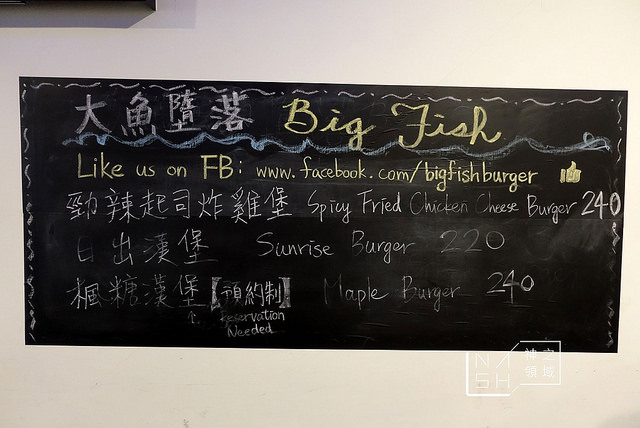 大魚墮落 Big Fish
Like us on FB: www.facebook.com/bigfishburger
勁辣起司炸雞堡 Spicy Fried Chicken Cheese Burger 240
日出漢堡 Sunrise Burger 220
楓糖漢堡【預約制】 Maple Burger 240
↑ Reservation
Needed
NASH 神之領域